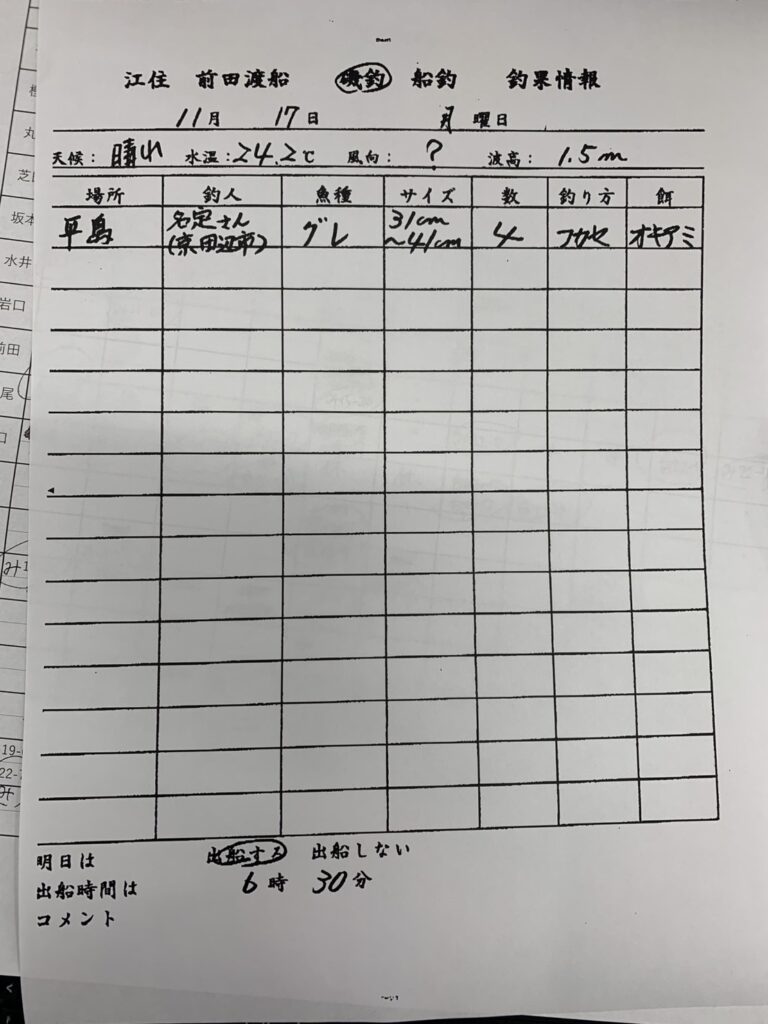 江住 前田渡船 磯釣 船釣 釣果情報
11月 17日 月 曜日
天候: 晴れ 水温:24.2℃ 風向: ? 波高: 1.5m
場所 釣人 魚種 サイズ 数 釣り方 餌
平島 名定さん (京田辺市) グレ 31cm ～41cm 4 フカセ オキアミ
明日は 出船する 出船しない
出船時間は 6時 30分
コメント
丸
坂本
水井
岩口
前田
尾
口
19-
22-